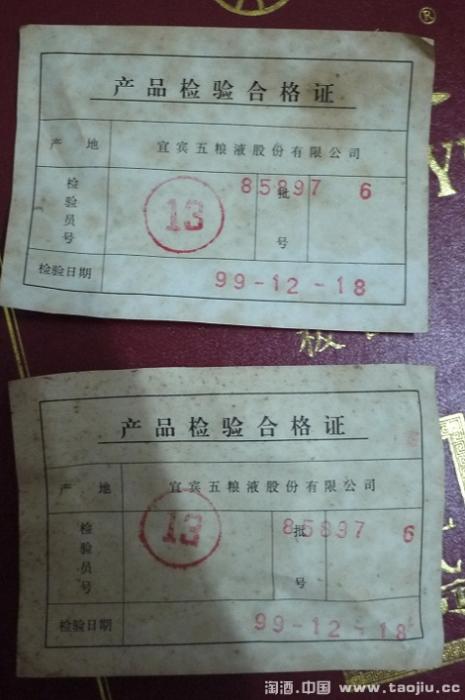 ®
产品检验合格证
产 地 宜宾五粮液股份有限公司
检验员号 13 批号 85897 6
检验日期 99-12-18
产品检验合格证
产 地 宜宾五粮液股份有限公司
检验员号 13 批号 85897 6
检验日期 99-12-18
淘酒.中国 www.taojiu.cc